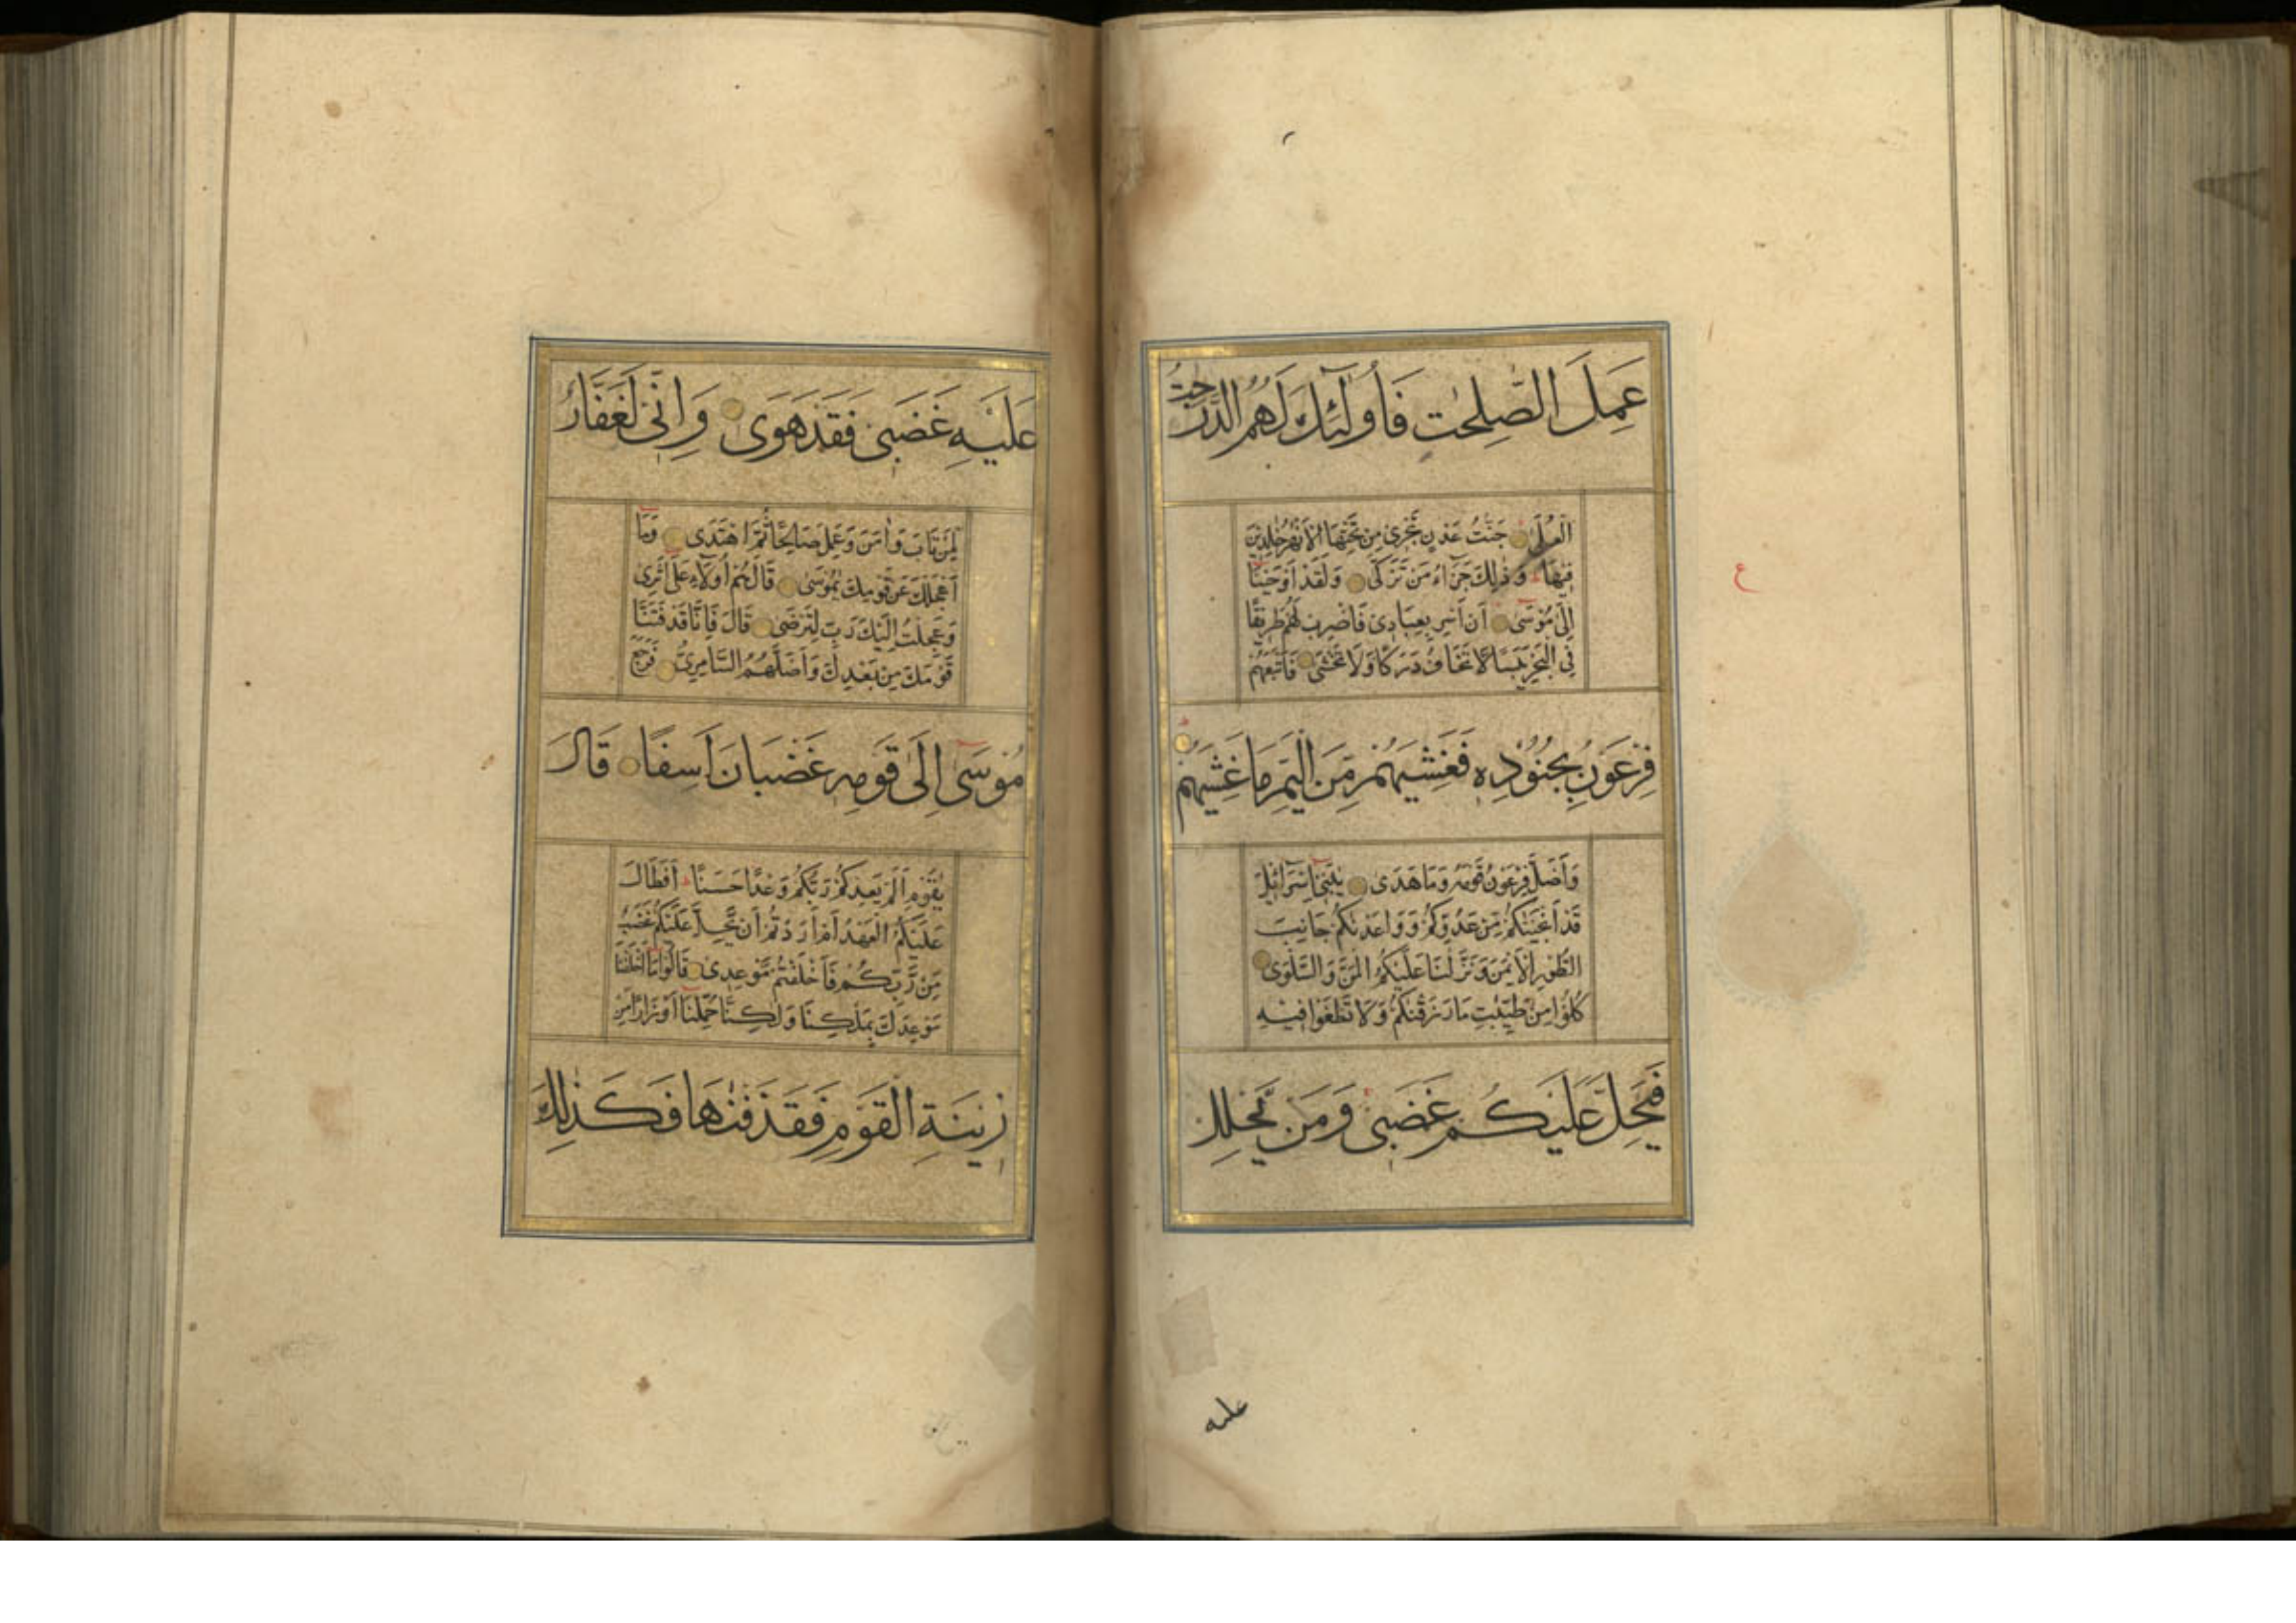 عَمِلَ الصّٰلِحٰتِ فَاُولٰٓئِكَ لَهُمُ الدَّرَجٰتُ
الْعُلٰى جَنّٰتُ عَدْنٍ تَجْرِىْ مِنْ تَحْتِهَا الْاَنْهٰرُ خٰلِدِيْنَ
فِيْهَا وَذٰلِكَ جَزَآءُ مَنْ تَزَكّٰى وَلَقَدْ اَوْحَيْنَآ
اِلٰى مُوْسٰٓى اَنْ اَسْرِ بِعِبَادِىْ فَاضْرِبْ لَهُمْ طَرِيْقًا
فِى الْبَحْرِ يَبَسًا لَّا تَخَافُ دَرَكًا وَّلَا تَخْشٰى فَاَتْبَعَهُمْ
فِرْعَوْنُ بِجُنُوْدِهٖ فَغَشِيَهُمْ مِّنَ الْيَمِّ مَا غَشِيَهُمْ
وَاَضَلَّ فِرْعَوْنُ قَوْمَهٗ وَمَا هَدٰى يٰبَنِىْٓ اِسْرَآئِيْلَ
قَدْ اَنْجَيْنٰكُمْ مِّنْ عَدُوِّكُمْ وَوٰعَدْنٰكُمْ جَانِبَ
الطُّوْرِ الْاَيْمَنَ وَنَزَّلْنَا عَلَيْكُمُ الْمَنَّ وَالسَّلْوٰى
كُلُوْا مِنْ طَيِّبٰتِ مَا رَزَقْنٰكُمْ وَلَا تَطْغَوْا فِيْهِ
فَيَحِلَّ عَلَيْكُمْ غَضَبِىْ وَمَنْ يَّحْلِلْ
ع
علیه
عَلَيْهِ غَضَبِىْ فَقَدْ هَوٰى وَاِنِّىْ لَغَفَّارٌ
لِّمَنْ تَابَ وَاٰمَنَ وَعَمِلَ صَالِحًا ثُمَّ اهْتَدٰى وَمَآ
اَعْجَلَكَ عَنْ قَوْمِكَ يٰمُوْسٰى قَالَ هُمْ اُولَآءِ عَلٰٓى اَثَرِىْ
وَعَجِلْتُ اِلَيْكَ رَبِّ لِتَرْضٰى قَالَ فَاِنَّا قَدْ فَتَنَّا
قَوْمَكَ مِنْ بَعْدِكَ وَاَضَلَّهُمُ السَّامِرِىُّ فَرَجَعَ
مُوْسٰٓى اِلٰى قَوْمِهٖ غَضْبَانَ اَسِفًا قَالَ
يٰقَوْمِ اَلَمْ يَعِدْكُمْ رَبُّكُمْ وَعْدًا حَسَنًا اَفَطَالَ
عَلَيْكُمُ الْعَهْدُ اَمْ اَرَدْتُّمْ اَنْ يَّحِلَّ عَلَيْكُمْ غَضَبٌ
مِّنْ رَّبِّكُمْ فَاَخْلَفْتُمْ مَّوْعِدِىْ قَالُوْا مَآ اَخْلَفْنَا
مَوْعِدَكَ بِمَلْكِنَا وَلٰكِنَّا حُمِّلْنَآ اَوْزَارًا مِّنْ
زِيْنَةِ الْقَوْمِ فَقَذَفْنٰهَا فَكَذٰلِكَ